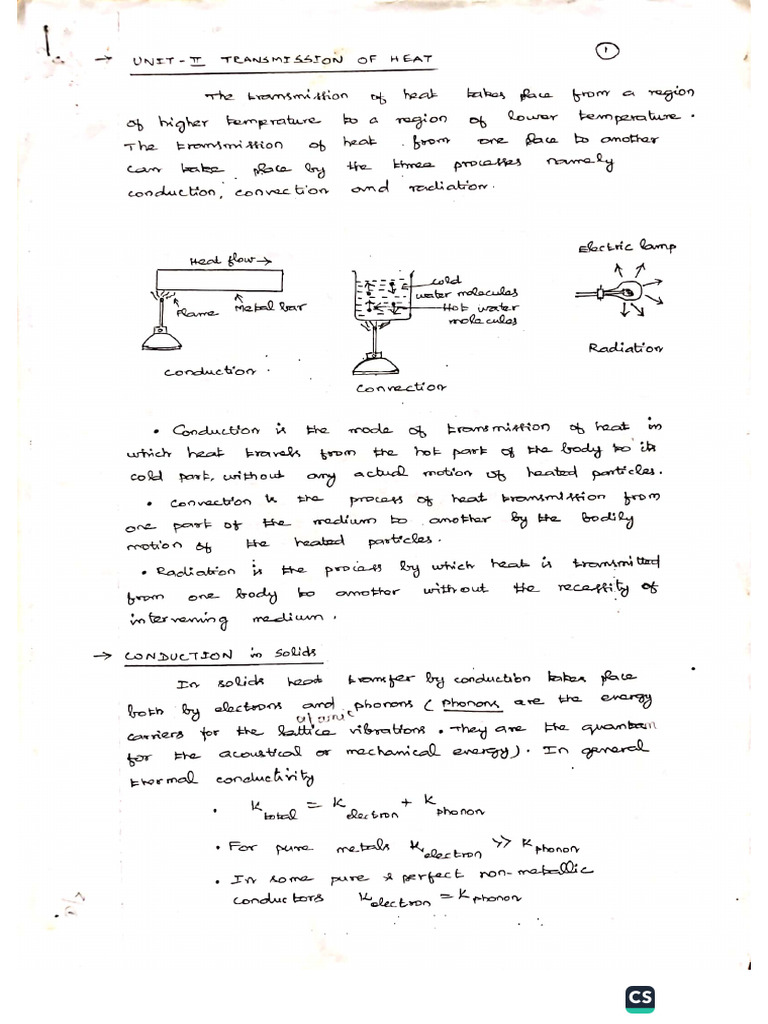 1.
→ UNIT-II TRANSMISSION OF HEAT
1
The transmission of heat takes place from a region
of higher temperature to a region of lower temperature.
The transmission of heat from one place to another
can take place by the three processes namely
conduction, convection and radiation.
Heat flow →
Flame
Metal bar
Conduction
cold
water molecules
Hot water
molecules
Convection
Electric lamp
Radiation
• Conduction is the mode of transmission of heat in
which heat travels from the hot part of the body to its
cold part, without any actual motion of heated particles.
• Convection is the process of heat transmission from
one part of the medium to another by the bodily
motion of the heated particles.
• Radiation is the process by which heat is transmitted
from one body to another without the necessity of
intervening medium.
→ CONDUCTION in solids
In solids heat transfer by conduction takes place
both by electrons and phonons (phonons are the energy
carriers for the lattice vibrations. They are the quantum
for the acoustical or mechanical energy). In general
thermal conductivity
• K total = K electron + K phonon
• For pure metals K electron >> K phonon
• In some pure & perfect non-metallic
conductors K electron = K phonon
CS